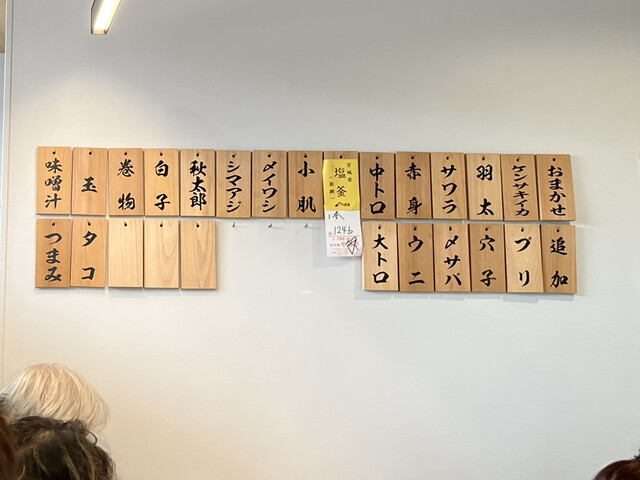 おまかせ
ケンサキイカ
羽太
サワラ
赤身
中トロ
宮城県
塩釜
1本
小肌
〆イワシ
シマアジ
秋太郎
白子
巻物
玉
味噌汁
追加
ブリ
穴子
〆サバ
ウニ
大トロ
タコ
つまみ